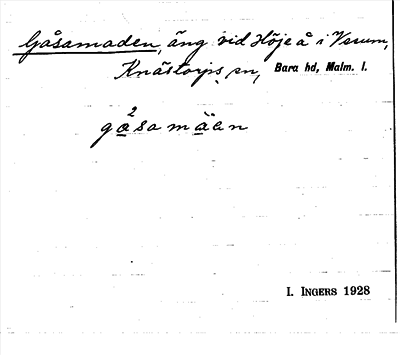 Gåsamaden, äng vid Höje å i Vesum,
Knästorps sn, Bara hd, Malm. l.
gåsamäen
I. INGERS 1928